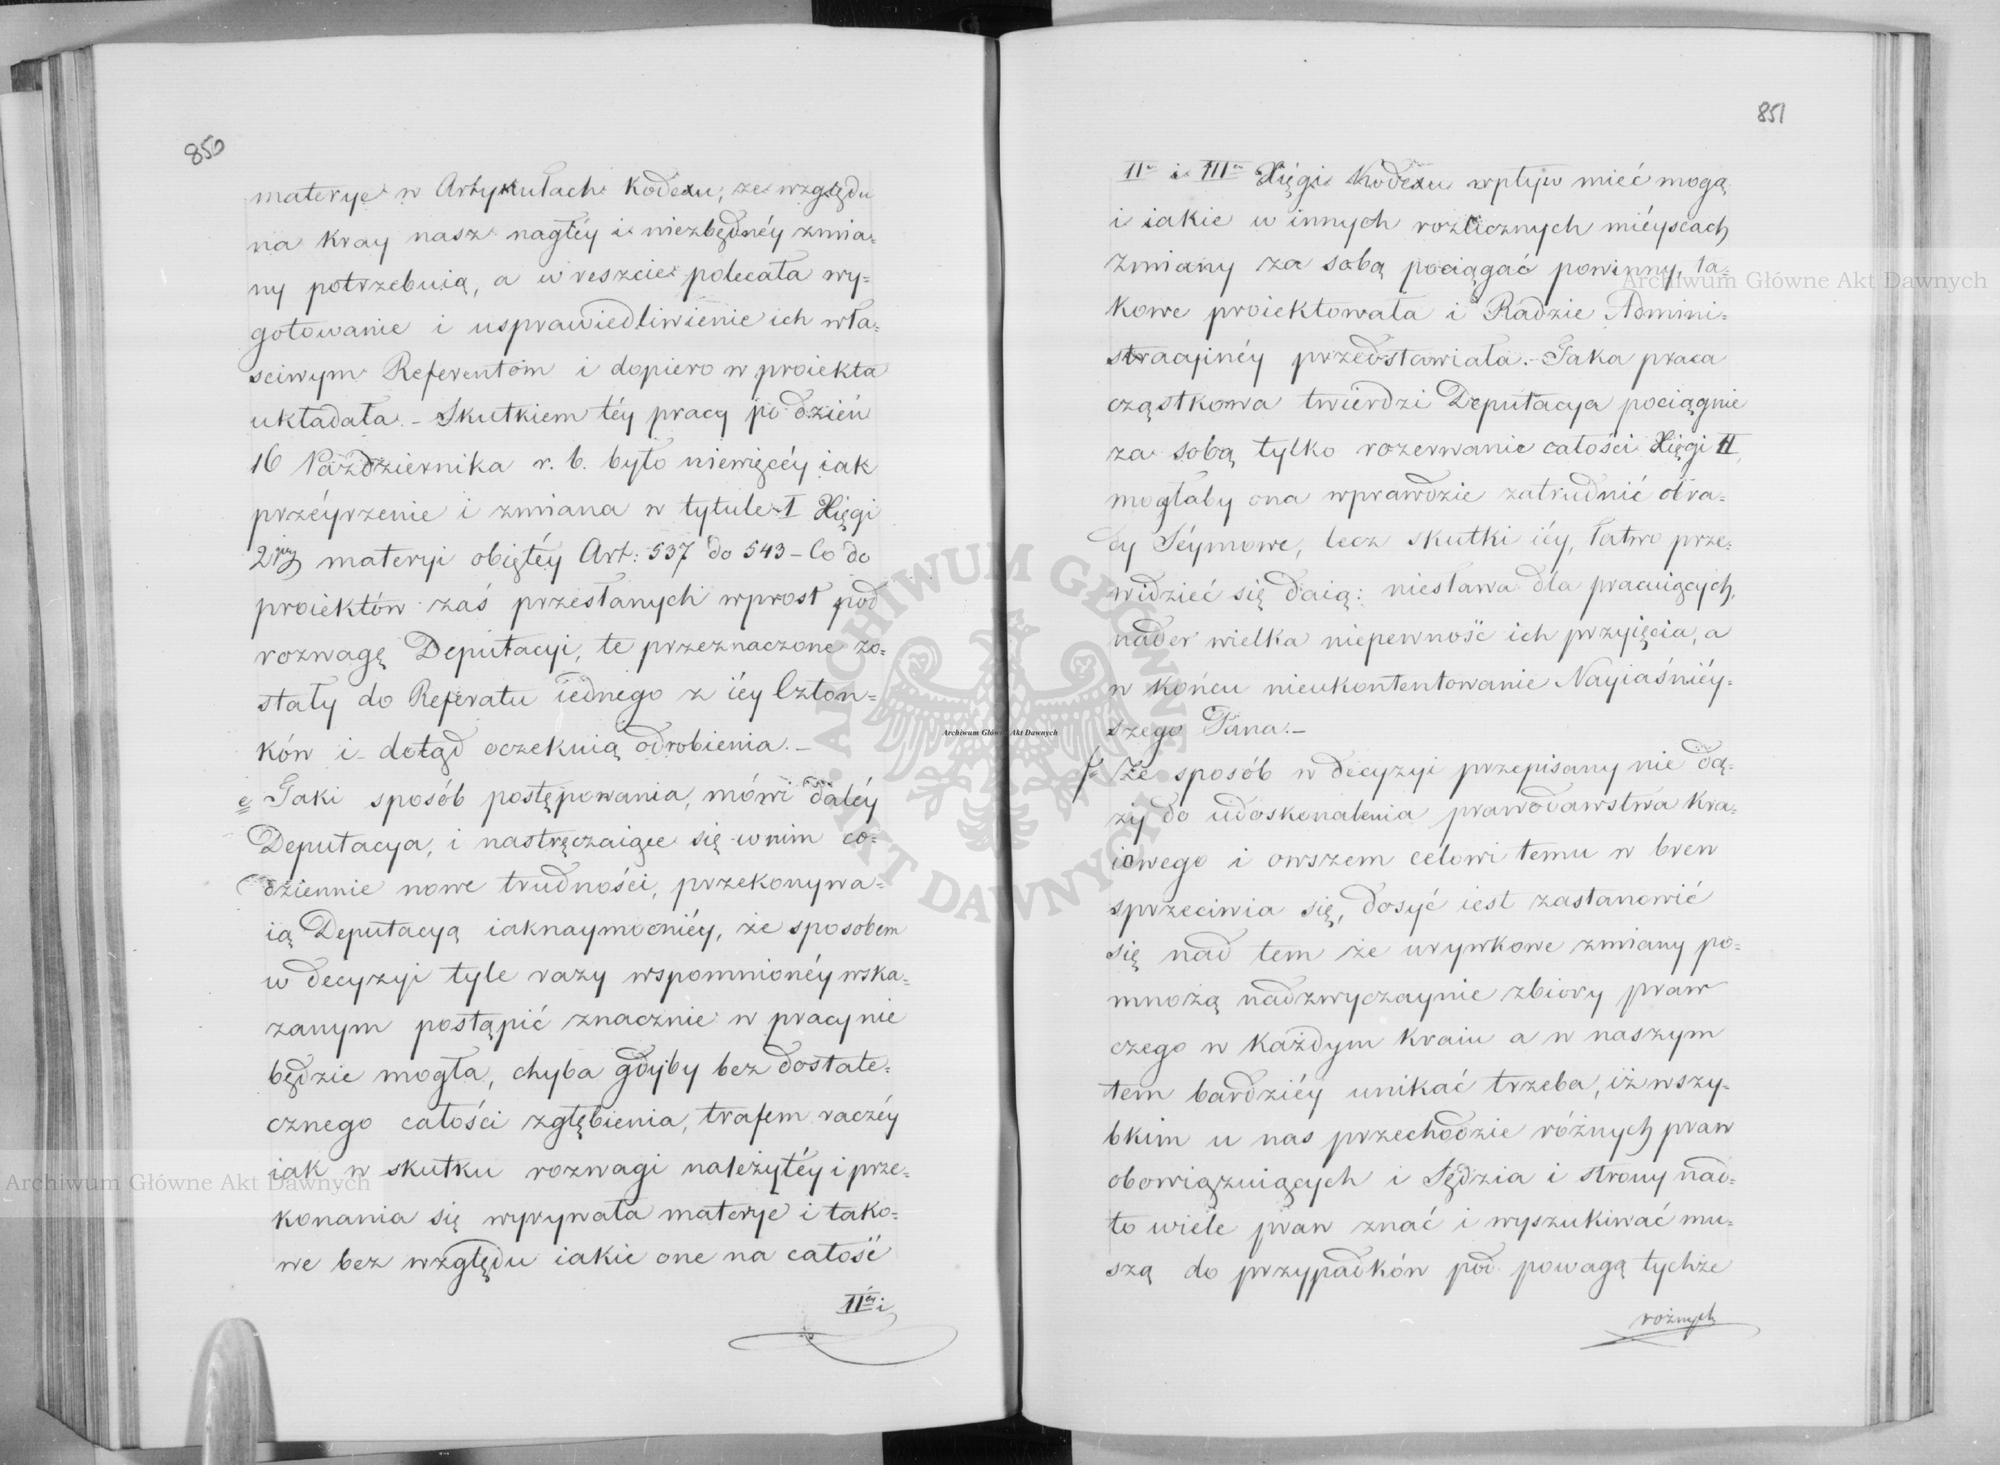 850
materye w Artykułach Kodexu, ze względu
na kray nasz nagłéy i niezbędnéy zmia=
ny potrzebuią, a w reszcie polecała wy=
gotowanie i usprawiedliwienie ich wła=
sciwym Referentom i dopiero w proiekta
układała. – Skutkiem téy pracy po dzień
16 Października r. b. było niewięcéy iak
przéyrzenie i zmiana w tytule I Xięgi
2giéy materyi obiętéy Art: 537 do 543 – Co do
proiektów zaś przesłanych wprost pod
rozwagę Deputacyi, te przeznaczone zo=
stały do Referatu iednego z iéy Człon=
ków i dotąd oczekuią odrobienia. –
e Taki sposób postępowania, mówi daléy
Deputacya, i nastręczaiące się w nim co=
dziennie nowe trudności, przekonywa=
ią Deputacyą iaknaymocniéy, że sposobem
w decyzyi tyle razy wspomnionéy wska=
zanym postąpić znacznie w pracy nie
będzie mogła, chyba gdyby bez dostate=
cznego całości zgłębienia, trafem raczéy
iak w skutku rozwagi należytéy i prze=
konania się wyrywała materye i tako=
we bez względu iakie one na całość
IIéy i
851
IIéy i IIIéy Xięgi Kodexu wpływ mieć mogą
i iakie w innych rozlicznych miéyscach
zmiany za sobą pociągać powinny, ta=
kowe proiektowała i Radzie Admini=
stracyinéy przedstawiała. – Taka praca
cząstkowa twierdzi Deputacya pociągnie
za sobą tylko rozerwanie całości Xięgi II,
mogłaby ona wprawdzie zatrudnić obra=
dy Séymowe, lecz skutki iéy, łatwo prze=
widzieć się daią: niesława dla pracuiących,
nader wielka niepewność ich przyięcia, a
w końcu nieukontentowanie Nayiaśniéy=
szego Pana. –
f Że sposób w decyzyi przepisany nie dą=
ży do udoskonalenia prawodawstwa kra=
iowego i owszem celowi temu w brew
sprzeciwia się, dosyć iest zastanowić
się nad tem że urywkowe zmiany po=
mnożą nadzwyczaynie zbiory praw
czego w każdym kraiu a w naszym
tem bardziéy unikać trzeba, iż w szy=
bkim u nas przechodzie różnych praw
obowiązuiących i Sędzia i strony nad=
to wiele praw znać i wyszukiwać mu=
szą do przypadków pod powagą tychże
rożnych
Archiwum Główne Akt Dawnych
Archiwum Główne Akt Dawnych
Archiwum Główne Akt Dawnych
ARCHIWUM GŁÓWNE AKT DAWNYCH